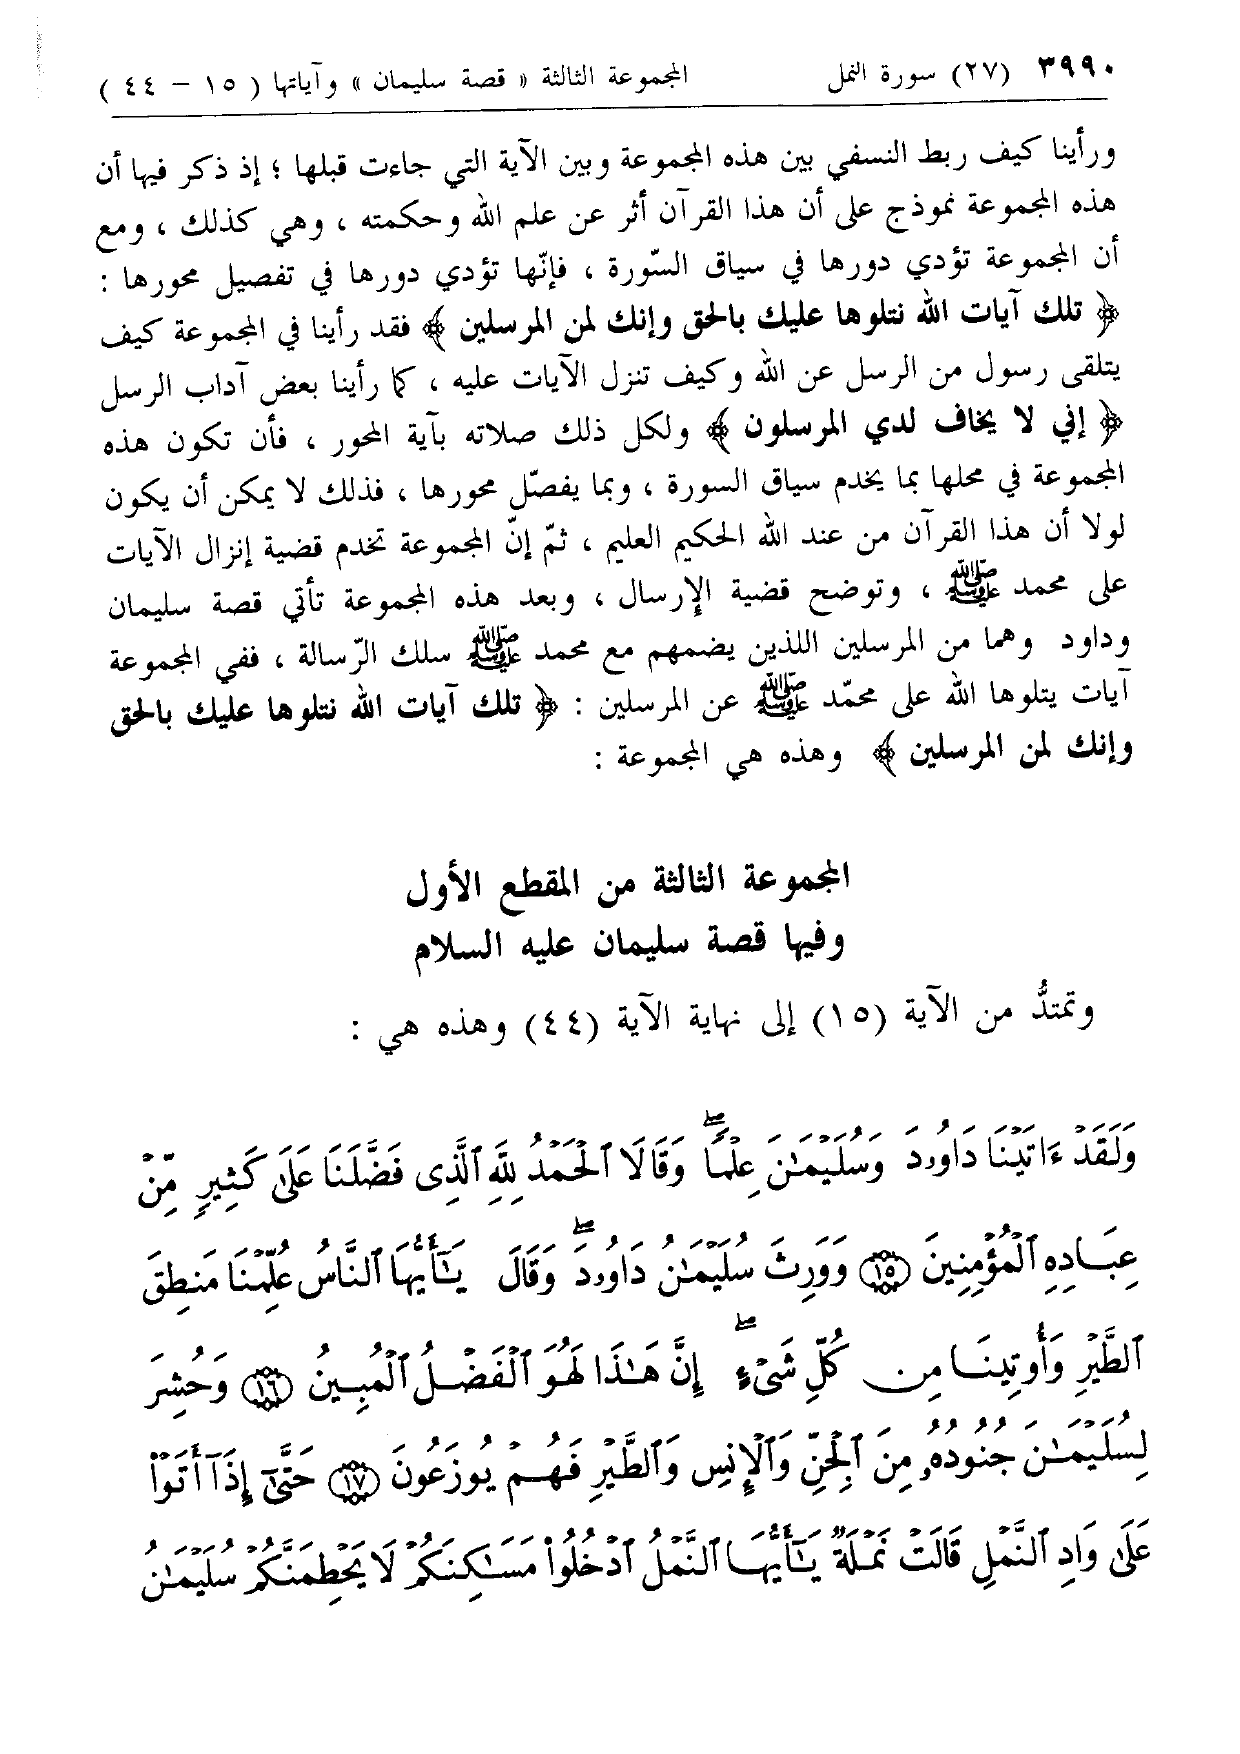 ٣٩٩٠ (٢٧) سورة النمل المجموعة الثالثة « قصة سليمان » وآياتها ( ١٥ – ٤٤ )
ورأينا كيف ربط النسفي بين هذه المجموعة وبين الآية التي جاءت قبلها ؛ إذ ذكر فيها أن
هذه المجموعة نموذج على أن هذا القرآن أثر عن علم الله وحكمته ، وهي كذلك ، ومع
أن المجموعة تؤدي دورها في سياق السّورة ، فإنّها تؤدي دورها في تفصيل محورها :
﴿ تلك آيات الله نتلوها عليك بالحق وإنك لمن المرسلين ﴾ فقد رأينا في المجموعة كيف
يتلقى رسول من الرسل عن الله وكيف تنزل الآيات عليه ، كما رأينا بعض آداب الرسل
﴿ إني لا يخاف لدي المرسلون ﴾ ولكل ذلك صلاته بآية المحور ، فأن تكون هذه
المجموعة في محلها بما يخدم سياق السورة ، وبما يفصّل محورها ، فذلك لا يمكن أن يكون
لولا أن هذا القرآن من عند الله الحكيم العليم ، ثمّ إنّ المجموعة تخدم قضية إنزال الآيات
على محمد ﷺ ، وتوضح قضية الإرسال ، وبعد هذه المجموعة تأتي قصة سليمان
وداود وهما من المرسلين اللذين يضمهم مع محمد ﷺ سلك الرّسالة ، ففي المجموعة
آيات يتلوها الله على محمّد ﷺ عن المرسلين : ﴿ تلك آيات الله نتلوها عليك بالحق
وإنك لمن المرسلين ﴾ وهذه هي المجموعة :
المجموعة الثالثة من المقطع الأول
وفيها قصة سليمان عليه السلام
وتمتدُّ من الآية (١٥) إلى نهاية الآية (٤٤) وهذه هي :
وَلَقَدْ ءَاتَيْنَا دَاوُۥدَ وَسُلَيْمَـٰنَ عِلْمًا ۖ وَقَالَا ٱلْحَمْدُ لِلَّهِ ٱلَّذِى فَضَّلَنَا عَلَىٰ كَثِيرٍ مِّنْ
عِبَادِهِ ٱلْمُؤْمِنِينَ ﴿١٥﴾ وَوَرِثَ سُلَيْمَـٰنُ دَاوُۥدَ ۖ وَقَالَ يَـٰٓأَيُّهَا ٱلنَّاسُ عُلِّمْنَا مَنطِقَ
ٱلطَّيْرِ وَأُوتِينَا مِن كُلِّ شَىْءٍ ۖ إِنَّ هَـٰذَا لَهُوَ ٱلْفَضْلُ ٱلْمُبِينُ ﴿١٦﴾ وَحُشِرَ
لِسُلَيْمَـٰنَ جُنُودُهُۥ مِنَ ٱلْجِنِّ وَٱلْإِنسِ وَٱلطَّيْرِ فَهُمْ يُوزَعُونَ ﴿١٧﴾ حَتَّىٰٓ إِذَآ أَتَوْا۟
عَلَىٰ وَادِ ٱلنَّمْلِ قَالَتْ نَمْلَةٌ يَـٰٓأَيُّهَا ٱلنَّمْلُ ٱدْخُلُوا۟ مَسَـٰكِنَكُمْ لَا يَحْطِمَنَّكُمْ سُلَيْمَـٰنُ